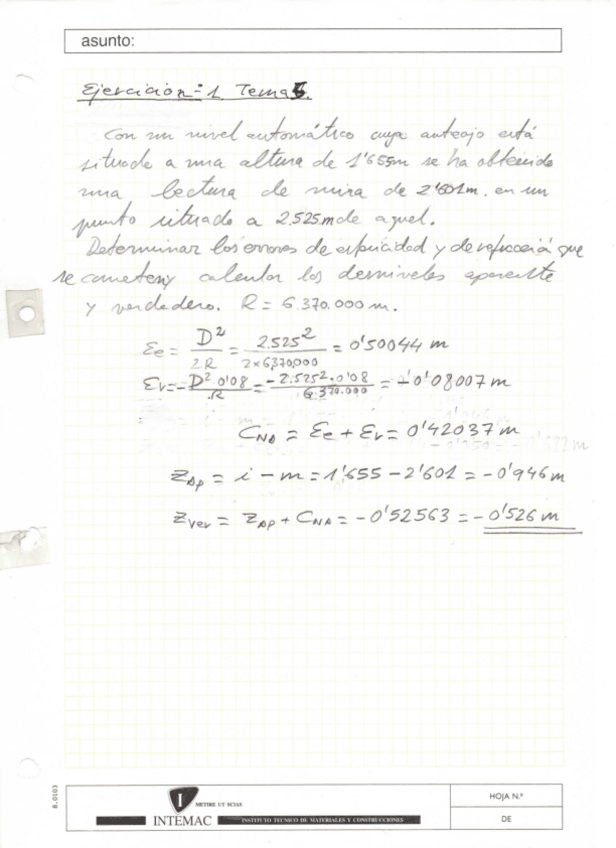 asunto:
Ejercicio nº 1 Tema 5.
Con un nivel automático cuyo anteojo está
situado a una altura de 1'655m se ha obtenido
una lectura de mira de 2'601m. en un
punto situado a 2.525m de aquel.
Determinar los errores de esfericidad y de refracción que
se cometen y calcular los desniveles aparente
y verdadero. R = 6.370.000 m.
Ee = D² / 2R = 2.525² / 2x6370,000 = 0'50044 m
Er = - D² 0'08 / R = -2.525² · 0'08 / 6.370.000 = -0'08007 m
CNA = Ee + Er = 0'42037 m
ZAp = i - m = 1'655 - 2'601 = -0'946 m
Zver = ZAp + CNA = -0'52563 = -0'526 m
8.0103
I
METIRE UT SCIAS
INTEMAC
INSTITUTO TECNICO DE MATERIALES Y CONSTRUCCIONES
HOJA N.º
DE